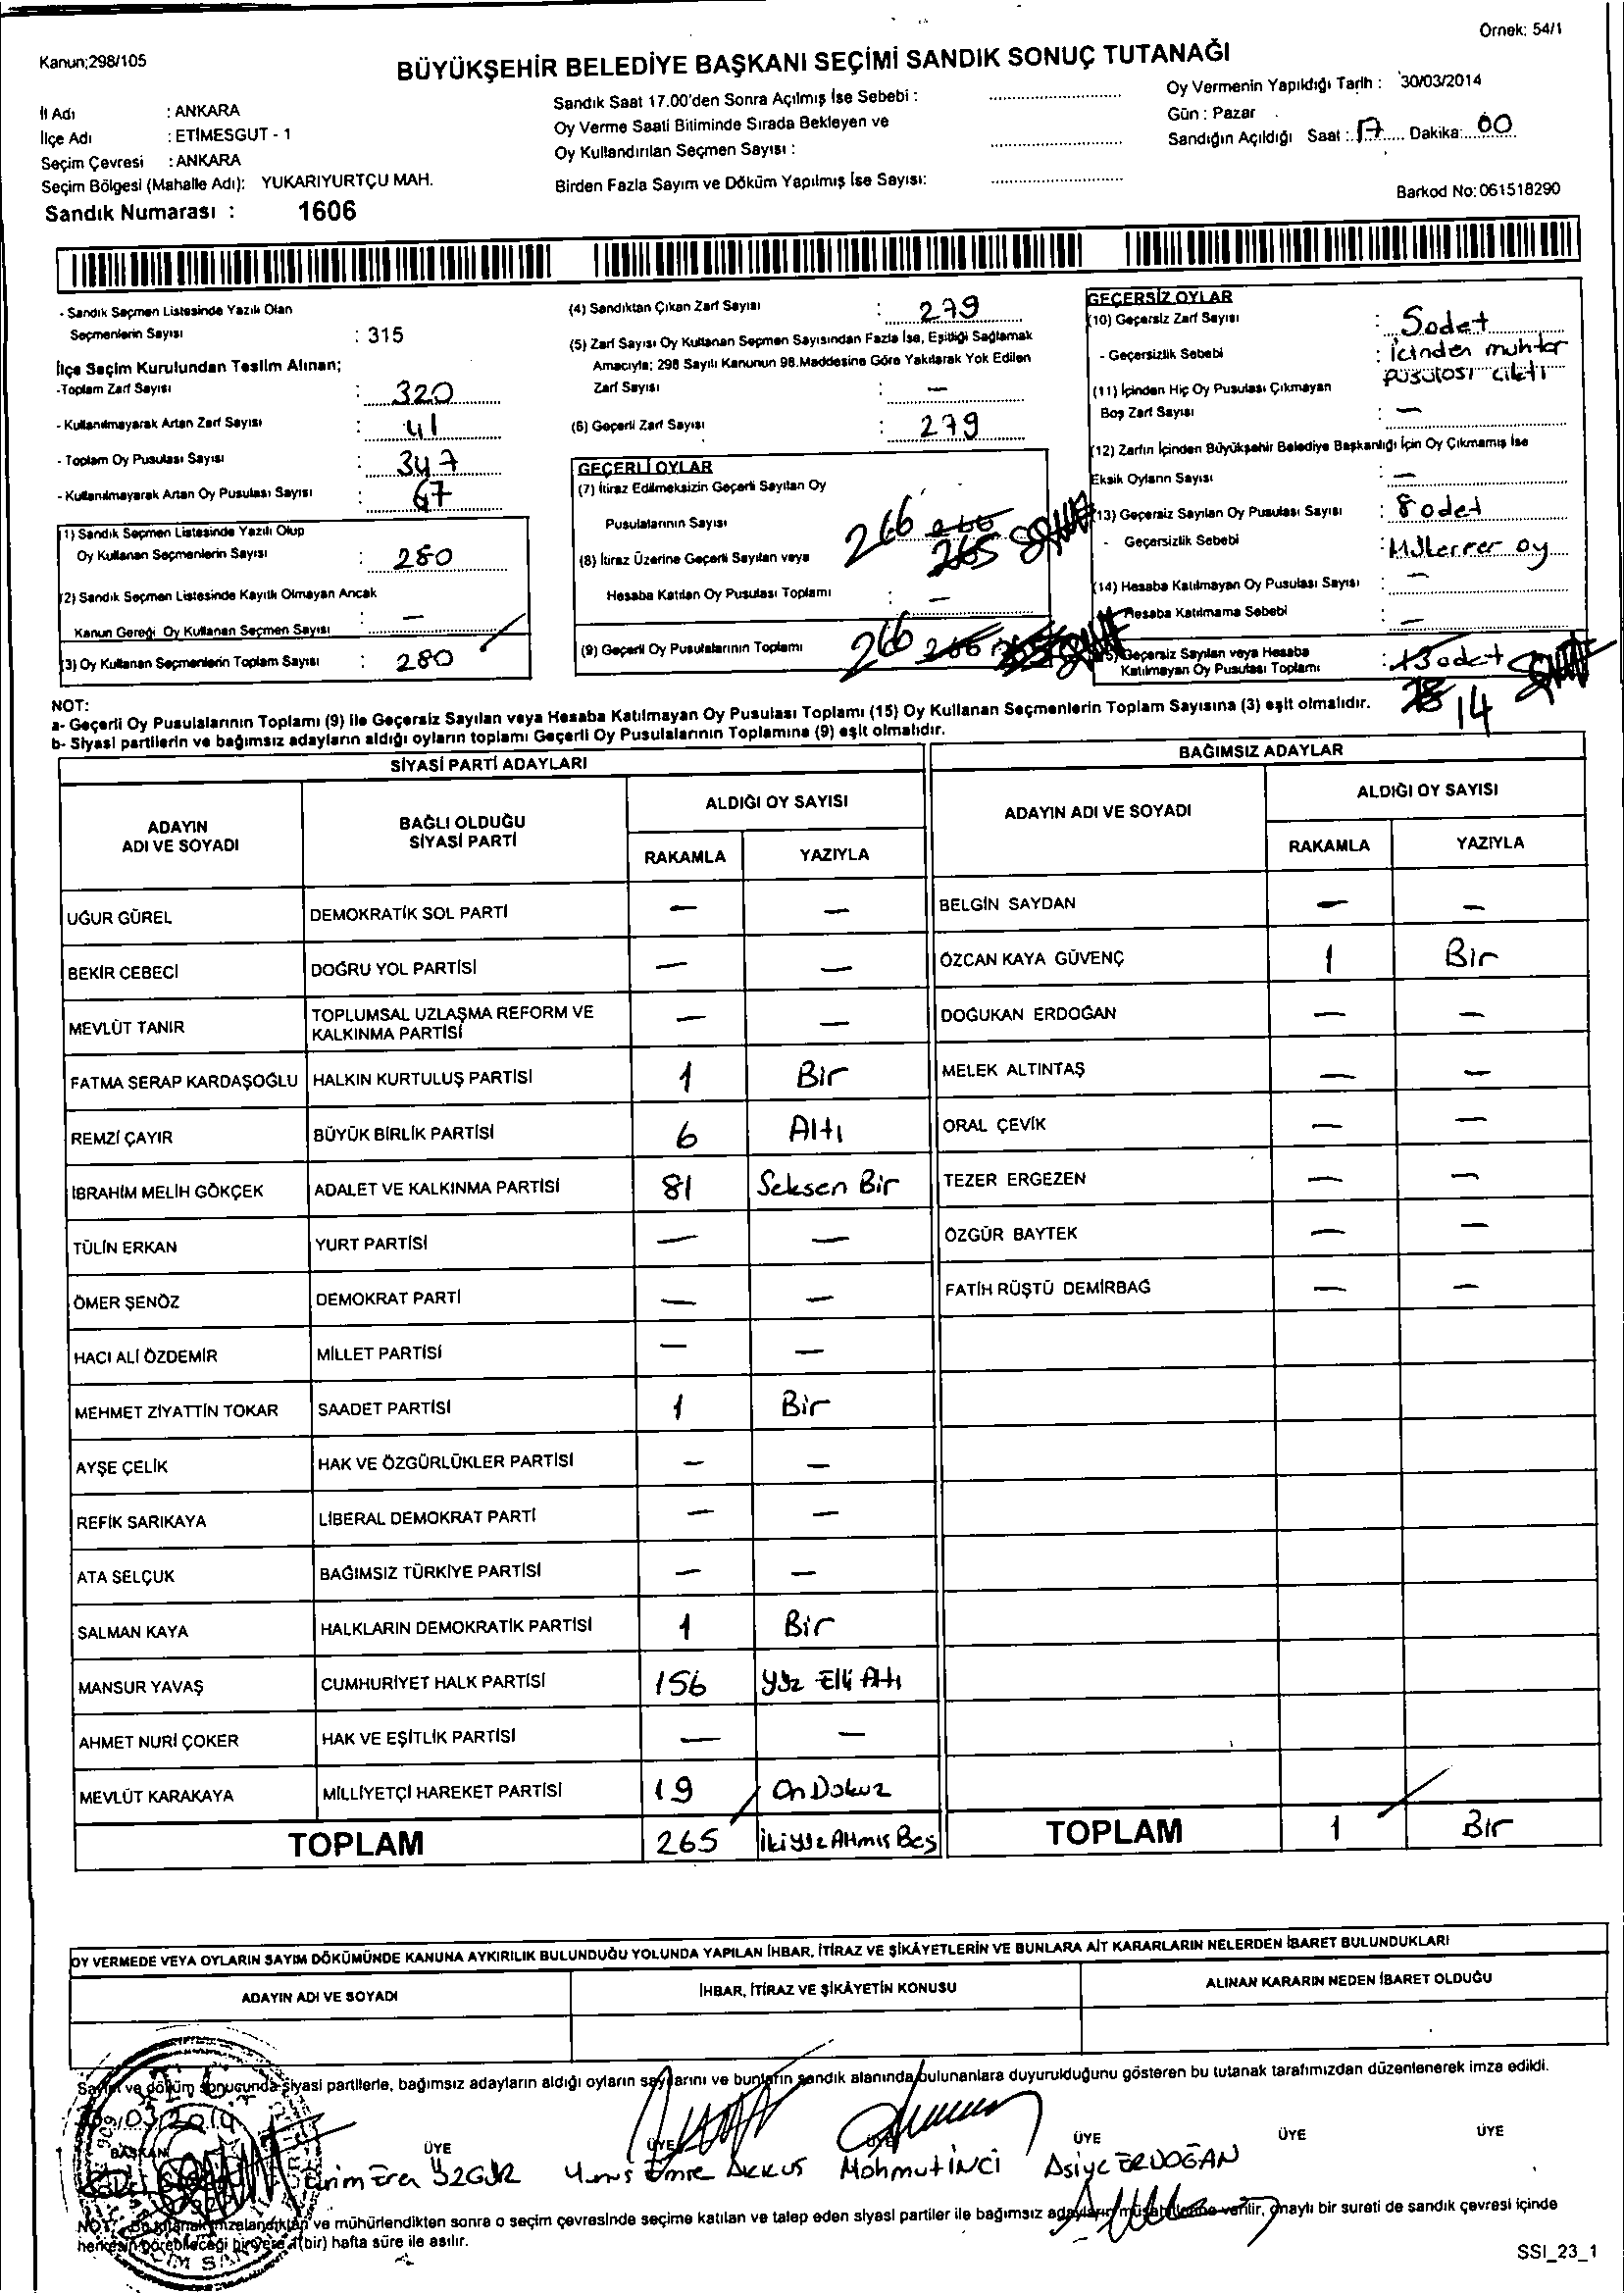 Örnek: 54/1
Kanun;298/105
BÜYÜKŞEHİR BELEDİYE BAŞKANI SEÇİMİ SANDIK SONUÇ TUTANAĞI
İl Adı : ANKARA
İlçe Adı : ETİMESGUT - 1
Seçim Çevresi : ANKARA
Seçim Bölgesi (Mahalle Adı): YUKARIYURTÇU MAH.
Sandık Numarası : 1606
Sandık Saat 17.00'den Sonra Açılmış İse Sebebi :
Oy Verme Saati Bitiminde Sırada Bekleyen ve
Oy Kullandırılan Seçmen Sayısı :
Birden Fazla Sayım ve Döküm Yapılmış İse Sayısı:
Oy Vermenin Yapıldığı Tarih : 30/03/2014
Gün : Pazar
Sandığın Açıldığı Saat : 17 Dakika: 00
Barkod No: 061518290
- Sandık Seçmen Listesinde Yazılı Olan
Seçmenlerin Sayısı : 315
İlçe Seçim Kurulundan Teslim Alınan;
-Toplam Zarf Sayısı : 320
- Kullanılmayarak Artan Zarf Sayısı : 41
- Toplam Oy Pusulası Sayısı : 347
- Kullanılmayarak Artan Oy Pusulası Sayısı : 67
(1) Sandık Seçmen Listesinde Yazılı Olup
Oy Kullanan Seçmenlerin Sayısı : 280
(2) Sandık Seçmen Listesinde Kayıtlı Olmayan Ancak
Kanun Gereği Oy Kullanan Seçmen Sayısı : —
(3) Oy Kullanan Seçmenlerin Toplam Sayısı : 280
(4) Sandıktan Çıkan Zarf Sayısı : 279
(5) Zarf Sayısı Oy Kullanan Seçmen Sayısından Fazla İse, Eşitliği Sağlamak
Amacıyla; 298 Sayılı Kanunun 98.Maddesine Göre Yakılarak Yok Edilen
Zarf Sayısı : —
(6) Geçerli Zarf Sayısı : 279
GEÇERLİ OYLAR
(7) İtiraz Edilmeksizin Geçerli Sayılan Oy
Pusulalarının Sayısı 266 266 265
(8) İtiraz Üzerine Geçerli Sayılan veya
Hesaba Katılan Oy Pusulası Toplamı : —
(9) Geçerli Oy Pusulalarının Toplamı 266 266
GEÇERSİZ OYLAR
(10) Geçersiz Zarf Sayısı : 5 adet
- Geçersizlik Sebebi : İcinden muhtar
pusulası cikti
(11) İçinden Hiç Oy Pusulası Çıkmayan
Boş Zarf Sayısı : —
(12) Zarfın İçinden Büyükşehir Belediye Başkanlığı İçin Oy Çıkmamış İse
Eksik Oyların Sayısı : —
(13) Geçersiz Sayılan Oy Pusulası Sayısı : 8 adet
- Geçersizlik Sebebi : Mükerrer oy
(14) Hesaba Katılmayan Oy Pusulası Sayısı : —
Hesaba Katılmama Sebebi : —
(15) Geçersiz Sayılan veya Hesaba : 13 adet
Katılmayan Oy Pusulası Toplamı 14
NOT:
a- Geçerli Oy Pusulalarının Toplamı (9) ile Geçersiz Sayılan veya Hesaba Katılmayan Oy Pusulası Toplamı (15) Oy Kullanan Seçmenlerin Toplam Sayısına (3) eşit olmalıdır.
b- Siyasi partilerin ve bağımsız adayların aldığı oyların toplamı Geçerli Oy Pusulalarının Toplamına (9) eşit olmalıdır.
SİYASİ PARTİ ADAYLARI
ADAYIN ADI VE SOYADI BAĞLI OLDUĞU SİYASİ PARTİ ALDIĞI OY SAYISI
RAKAMLA YAZIYLA
UĞUR GÜREL DEMOKRATİK SOL PARTİ — —
BEKİR CEBECİ DOĞRU YOL PARTİSİ — —
MEVLÜT TANIR TOPLUMSAL UZLAŞMA REFORM VE KALKINMA PARTİSİ — —
FATMA SERAP KARDAŞOĞLU HALKIN KURTULUŞ PARTİSİ 1 Bir
REMZİ ÇAYIR BÜYÜK BİRLİK PARTİSİ 6 Altı
İBRAHİM MELİH GÖKÇEK ADALET VE KALKINMA PARTİSİ 81 Seksen Bir
TÜLİN ERKAN YURT PARTİSİ — —
ÖMER ŞENÖZ DEMOKRAT PARTİ — —
HACI ALİ ÖZDEMİR MİLLET PARTİSİ — —
MEHMET ZİYATTİN TOKAR SAADET PARTİSİ 1 Bir
AYŞE ÇELİK HAK VE ÖZGÜRLÜKLER PARTİSİ — —
REFİK SARIKAYA LİBERAL DEMOKRAT PARTİ — —
ATA SELÇUK BAĞIMSIZ TÜRKİYE PARTİSİ — —
SALMAN KAYA HALKLARIN DEMOKRATİK PARTİSİ 1 Bir
MANSUR YAVAŞ CUMHURİYET HALK PARTİSİ 156 Yüz Elli Altı
AHMET NURİ ÇOKER HAK VE EŞİTLİK PARTİSİ — —
MEVLÜT KARAKAYA MİLLİYETÇİ HAREKET PARTİSİ 19 On Dokuz
TOPLAM 265 İkiyüz Altmıs Beş
BAĞIMSIZ ADAYLAR
ADAYIN ADI VE SOYADI ALDIĞI OY SAYISI
RAKAMLA YAZIYLA
BELGİN SAYDAN — —
ÖZCAN KAYA GÜVENÇ 1 Bir
DOĞUKAN ERDOĞAN — —
MELEK ALTINTAŞ — —
ORAL ÇEVİK — —
TEZER ERGEZEN — —
ÖZGÜR BAYTEK — —
FATİH RÜŞTÜ DEMİRBAĞ — —
TOPLAM 1 Bir
OY VERMEDE VEYA OYLARIN SAYIM DÖKÜMÜNDE KANUNA AYKIRILIK BULUNDUĞU YOLUNDA YAPILAN İHBAR, İTİRAZ VE ŞİKÂYETLERİN VE BUNLARA AİT KARARLARIN NELERDEN İBARET BULUNDUKLARI
ADAYIN ADI VE SOYADI İHBAR, İTİRAZ VE ŞİKÂYETİN KONUSU ALINAN KARARIN NEDEN İBARET OLDUĞU
Sayım ve döküm sonucunda siyasi partilerle, bağımsız adayların aldığı oyların sayılarını ve bunların sandık alanında bulunanlara duyurulduğunu gösteren bu tutanak tarafımızdan düzenlenerek imza edildi.
03/2014
BAŞKAN ÜYE ÜYE ÜYE ÜYE ÜYE ÜYE
ÖZGÜR Yunus Emre AKKUS Mahmut İNCİ Asiye ERDOĞAN
NOT: Bu tutanak imzalandıktan ve mühürlendikten sonra o seçim çevresinde seçime katılan ve talep eden siyasi partiler ile bağımsız adayların müşahitlerine verilir, onaylı bir sureti de sandık çevresi içinde
herkesin görebileceği bir yere 1(bir) hafta süre ile asılır.
SSI_23_1